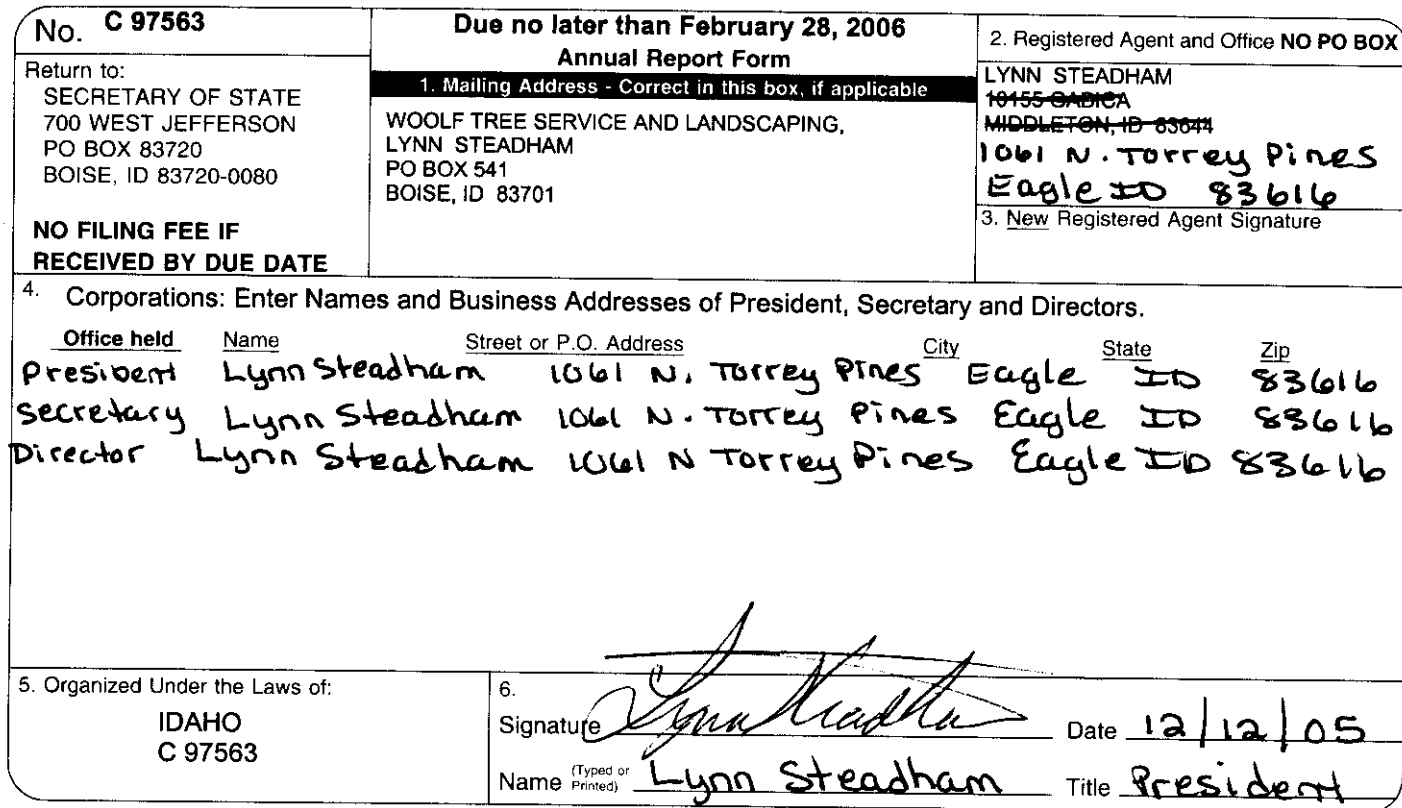 No. C 97563
Return to:
SECRETARY OF STATE
700 WEST JEFFERSON
PO BOX 83720
BOISE, ID 83720-0080
NO FILING FEE IF
RECEIVED BY DUE DATE
Due no later than February 28, 2006
Annual Report Form
1. Mailing Address - Correct in this box, if applicable
WOOLF TREE SERVICE AND LANDSCAPING,
LYNN STEADHAM
PO BOX 541
BOISE, ID 83701
2. Registered Agent and Office NO PO BOX
LYNN STEADHAM
10155 GADICA
MIDDLETON, ID 83644
1061 N. Torrey Pines
Eagle ID 83616
3. New Registered Agent Signature
4. Corporations: Enter Names and Business Addresses of President, Secretary and Directors.
Office held Name Street or P.O. Address City State Zip
President Lynn Steadham 1061 N. Torrey Pines Eagle ID 83616
Secretary Lynn Steadham 1061 N. Torrey Pines Eagle ID 83616
Director Lynn Steadham 1061 N Torrey Pines Eagle ID 83616
5. Organized Under the Laws of:
IDAHO
C 97563
6.
Signature Lynn Steadham Date 12/12/05
Name (Typed or Printed) Lynn Steadham Title President